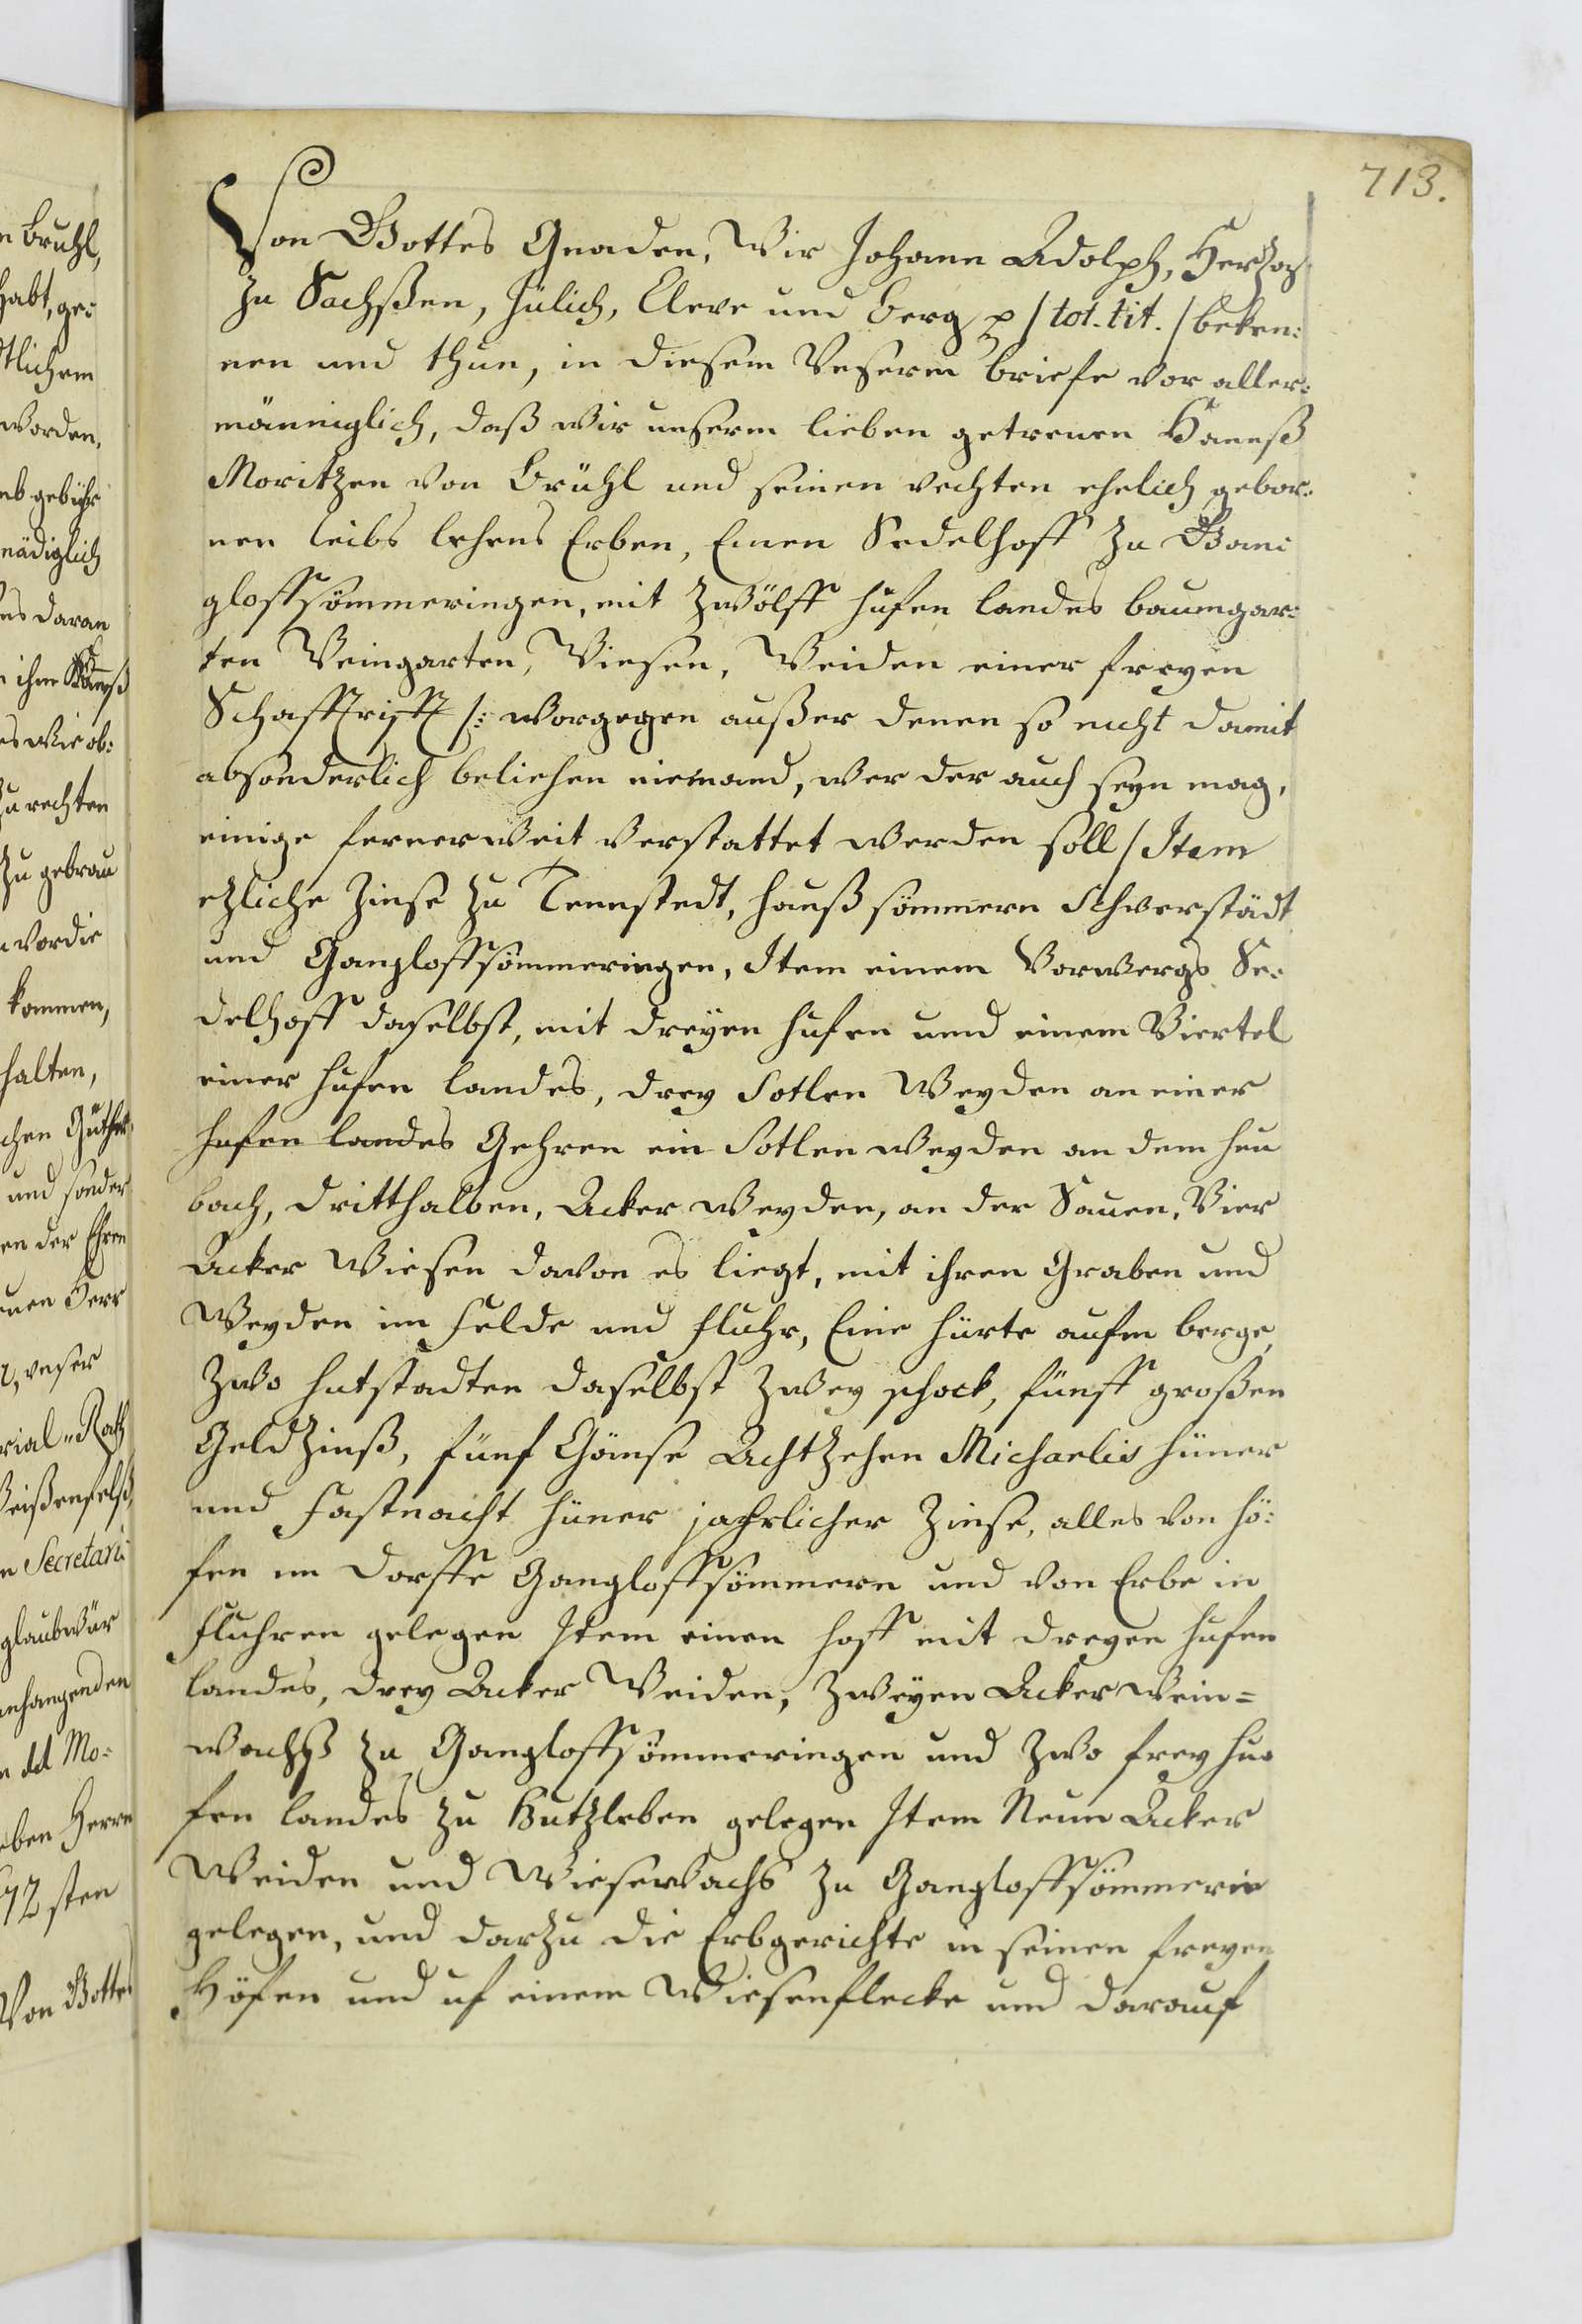 713.
Von Gottes Gnaden, Wir Johann Adolph, Hertzog
zu Sachßen, Jülich, Cleve und Berg p / tot. tit. / beken:
nen und thun, in diesem Unserm briefe vor aller:
männiglich, daß wir unserm lieben getreuen Hannß
Moritzen von Brühl und seinen rechten ehelich gebor:
nen leibs lehens Erben, Einen Sedelhoff zu Gan:
gloffsömmeringen, mit zwölff hufen landes baumgar:
ten Weingarten, Wiesen, Weiden einer freyen
Schafftrifft /: worgegen außer denen so nicht damit
absonderlich beliehen niemand, wer der auch seyn mag,
einige fernerweit verstattet werden soll / Item
etzliche Zinse zu Tennstedt, haußsömmern Schwerstädt
und Gangloffsömmeringen, Item einem Vorwergs Se:
delhoff daselbst, mit dreyen hufen und einem Viertel
einer hufen landes, drey Sotlen Weyden an einer
hufen landes Gehren ein Sotlen Weyden an dem heu
bach, dritthalben, Acker Weyden, an der Sauen, Vier
Acker Wiesen davon es liegt, mit ihren Graben und
Weyden im Felde und fluhr, Eine hürte aufm berge,
Zwo hutstadten daselbst zwey schock, fünff großen
Geldzinß, fünf Gänse Achtzehen Michaelis hüner
und Fastnacht hüner jahrlicher Zinse, alles von hö:
fen im dorffe Gangloffsömmern und von Erbe in
fluhren gelegen Item einen hoff mit dreyen hufen
landes, drey Acker Weiden, Zweyen Acker Wein=
wachß zu Gangloffsömmeringen und zwo frey hu:
fen landes zu Butzleben gelegen Item Neun Acker
Weiden und Wiesewachs zu Gangloffsömmerin
gelegen, und darzu die Erbgerichte in seinen freyen
Höfen und uf einem Wiesenflecke und darauf
n Bruhl,
habt, ge:
worden,
nädiglich
es daran
ihm Hannß
es wie ob:
zu rechten
zu gebrau
vor die
kommen,
halten,
chen Güther
und sonder
en der Ehren
unser
rial-Rath
Weißenfelß
n Secretari
glaubwür
anhangenden
Mo:
eben Herrn
72 sten
Von Gottes